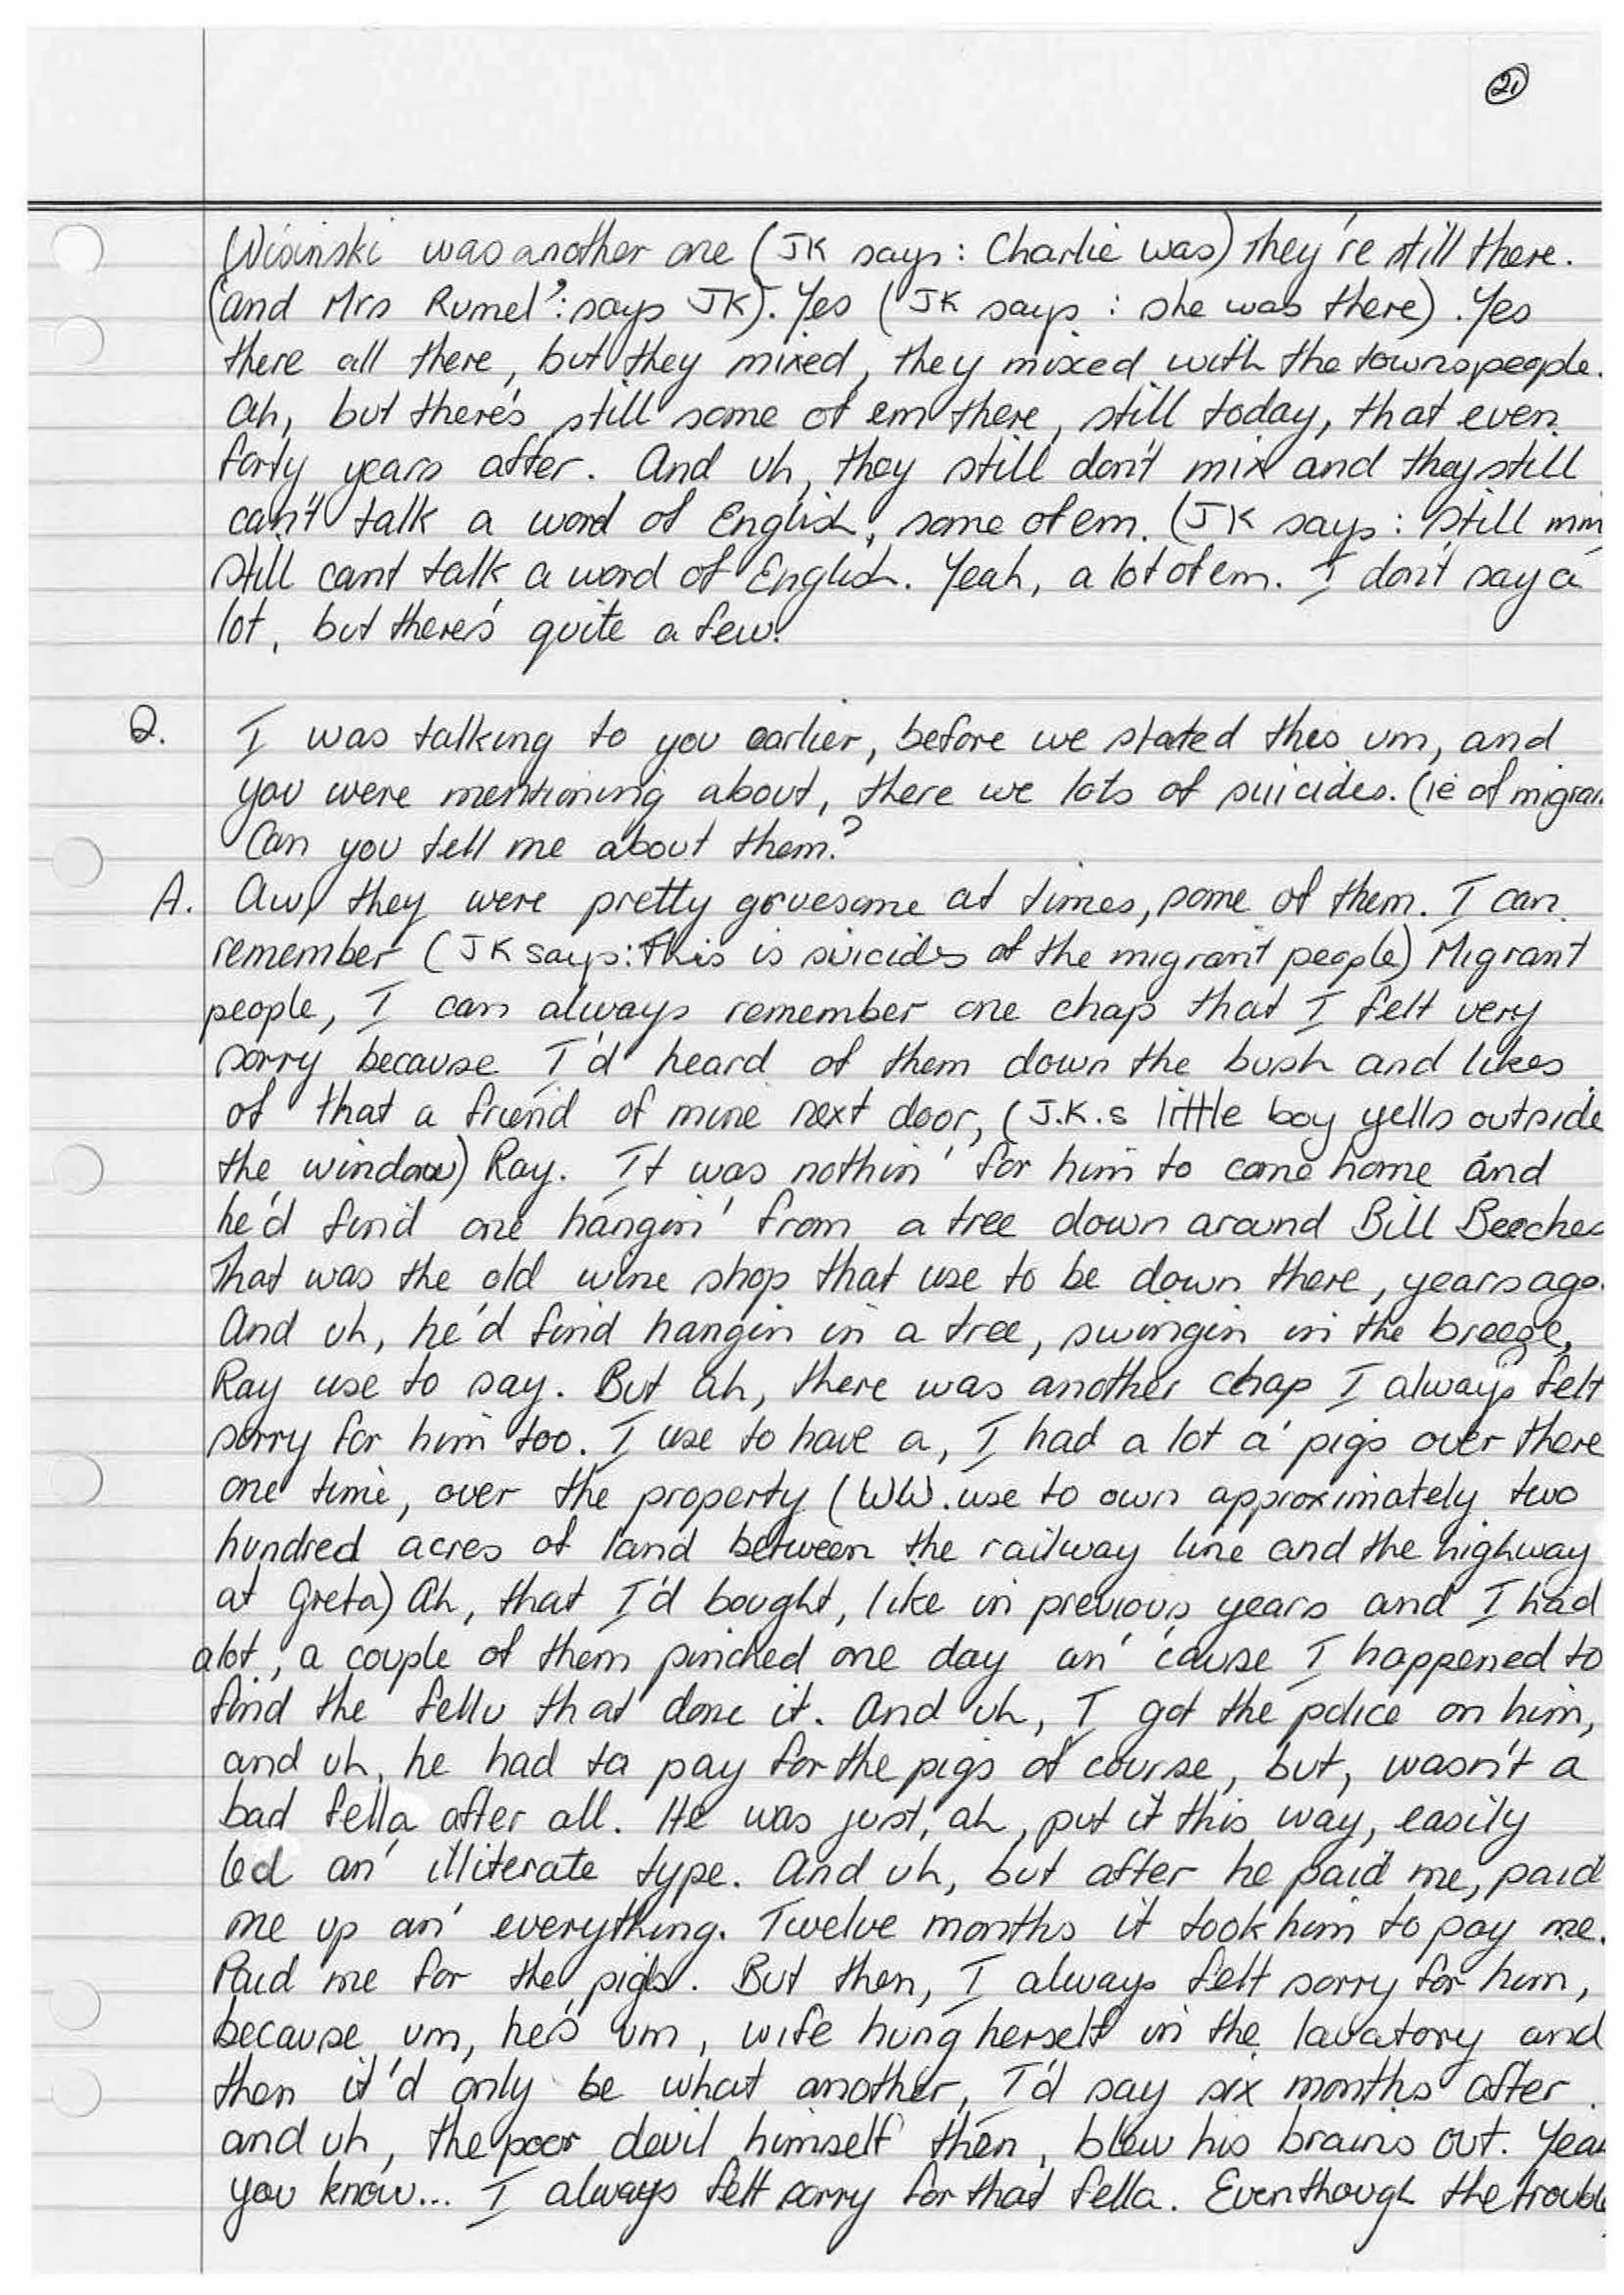 21
Wisinski was another one (JK says: Charlie was) they're still there.
(and Mrs Rumel?: says JK). Yes (JK says: she was there). Yes
there all there, but they mixed, they mixed with the townspeople.
ah, but there's still some of em there, still today, that even
forty years after. And uh, they still don't mix and they still
can't talk a word of English, some of em. (JK says: still mm
still cant talk a word of English. Yeah, a lot of em. I don't say a
lot, but there's quite a few.
Q. I was talking to you earlier, before we stated this um, and
you were mentioning about, there we lots of suicides. (ie of migran
Can you tell me about them?
A. Aw, they were pretty gruesome at times, some of them. I can
remember (JK says: This is suicides of the migrant people) Migrant
people, I can always remember one chap that I felt very
sorry because I'd heard of them down the bush and likes
of that a friend of mine next door, (J.K.s little boy yells outside
the window) Ray. It was nothin' for him to come home and
he'd find one hangin' from a tree down around Bill Beeches
That was the old wine shop that use to be down there, years ago.
And uh, he'd find hangin in a tree, swingin in the breeze,
Ray use to say. But ah, there was another chap I always felt
sorry for him too. I use to have a, I had a lot a' pigs over there
one time, over the property (WW. use to own approximately two
hundred acres of land between the railway line and the highway
at Greta) Ah, that I'd bought, like in previous years and I had
alot, a couple of them pinched one day an' 'cause I happened to
find the fella that done it. And uh, I got the police on him,
and uh, he had ta pay for the pigs of course, but, wasn't a
bad fella after all. He was just, ah, put it this way, easily
led an' illiterate type. And uh, but after he paid me, paid
me up an' everything. Twelve months it took him to pay me.
Paid me for the pigs. But then, I always felt sorry for him,
because um, he's um, wife hung herself in the lavatory and
then it'd only be what another, I'd say six months after
and uh, the poor devil himself then, blew his brains out. Yeah
you know... I always felt sorry for that fella. Eventhough the trouble